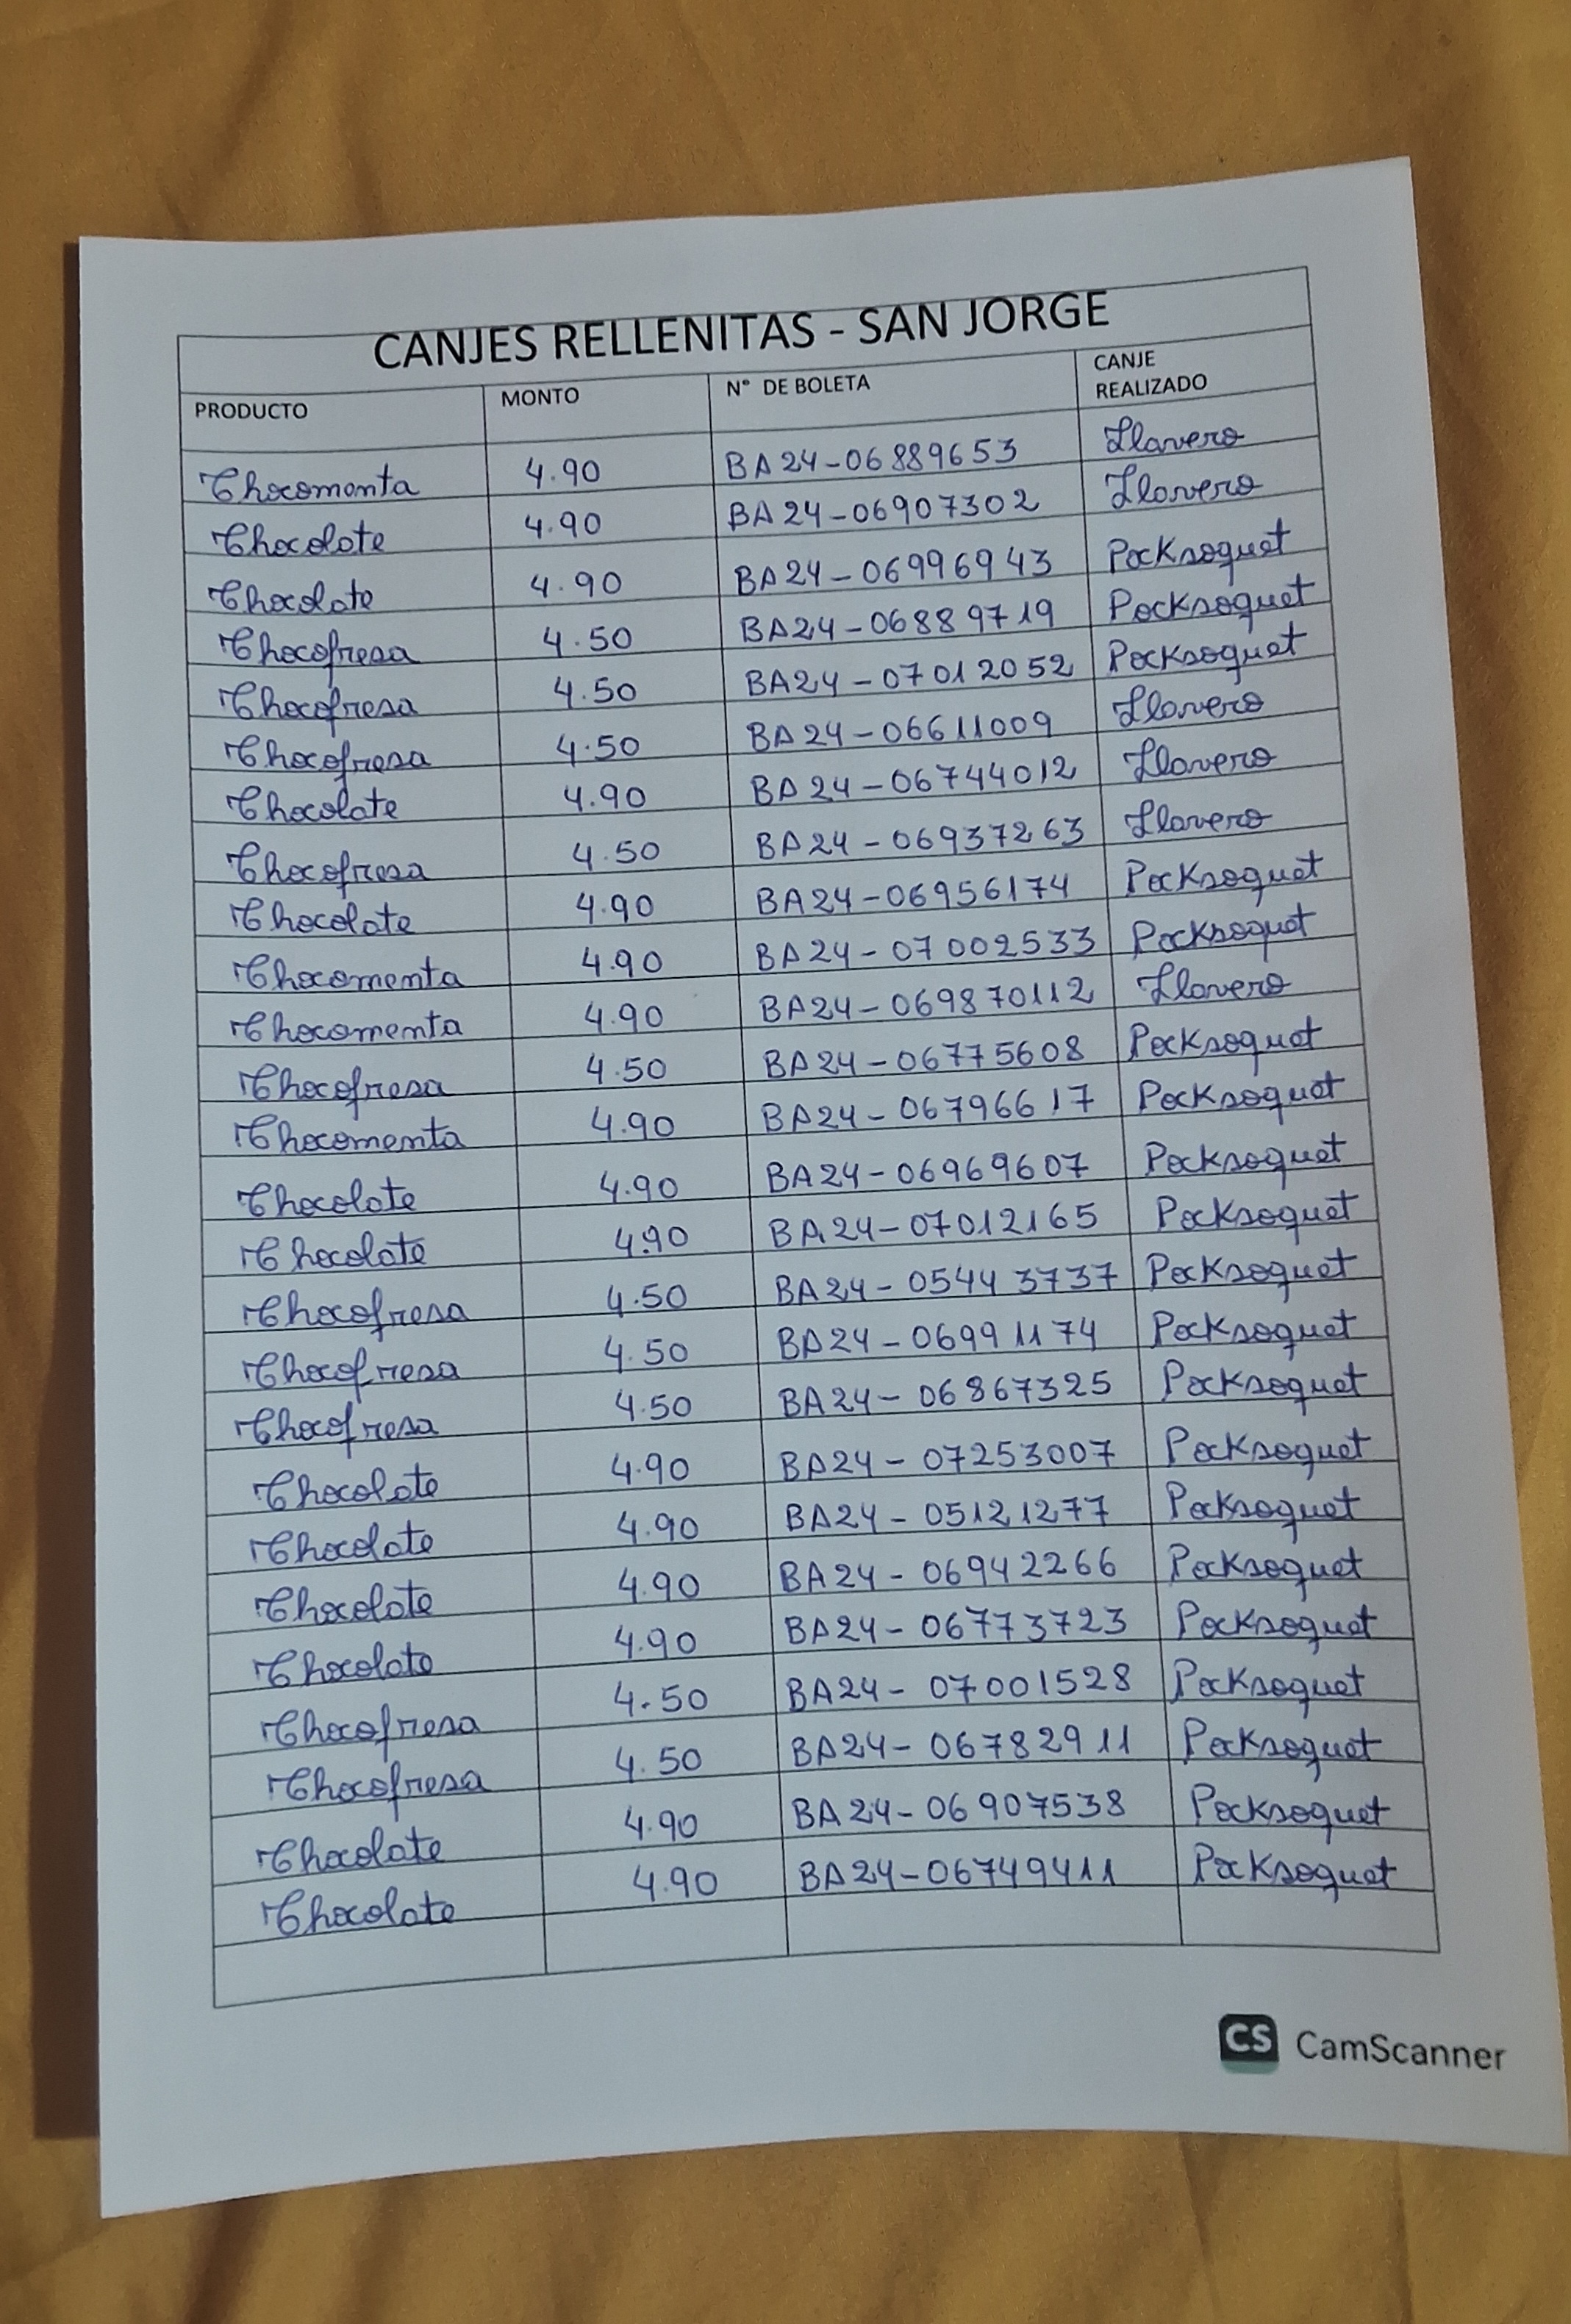 CANJES RELLENITAS - SAN JORGE
PRODUCTO MONTO N° DE BOLETA CANJE REALIZADO
Chocomenta 4.90 BA24-06889653 Llavero
Chocolate 4.90 BA24-06907302 Llavero
Chocolate 4.90 BA24-06996943 Packsoquet
Chocofresa 4.50 BA24-06889719 Packsoquet
Chocofresa 4.50 BA24-07012052 Packsoquet
Chocofresa 4.50 BA24-06611009 Llavero
Chocolate 4.90 BA24-06744012 Llavero
Chocofresa 4.50 BA24-06937263 Llavero
Chocolate 4.90 BA24-06956174 Packsoquet
Chocomenta 4.90 BA24-07002533 Packsoquet
Chocomenta 4.90 BA24-069870112 Llavero
Chocofresa 4.50 BA24-06775608 Packsoquet
Chocomenta 4.90 BA24-06796617 Packsoquet
Chocolate 4.90 BA24-06969607 Packsoquet
Chocolate 4.90 BA24-07012165 Packsoquet
Chocofresa 4.50 BA24-05443737 Packsoquet
Chocofresa 4.50 BA24-06991174 Packsoquet
Chocofresa 4.50 BA24-06867325 Packsoquet
Chocolate 4.90 BA24-07253007 Packsoquet
Chocolate 4.90 BA24-05121277 Packsoquet
Chocolate 4.90 BA24-06942266 Packsoquet
Chocolate 4.90 BA24-06773723 Packsoquet
Chocofresa 4.50 BA24-07001528 Packsoquet
Chocofresa 4.50 BA24-06782911 Packsoquet
Chocolate 4.90 BA24-06907538 Packsoquet
Chocolate 4.90 BA24-06749411 Packsoquet
CS CamScanner